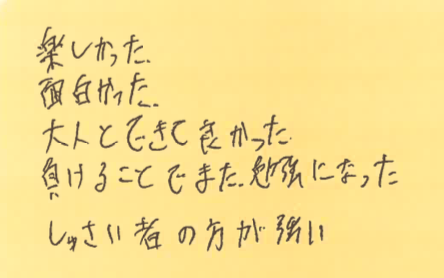 楽しかった
面白かった
大人とできて良かった
負けることでまた勉強になった
しゅさい者の方が強い